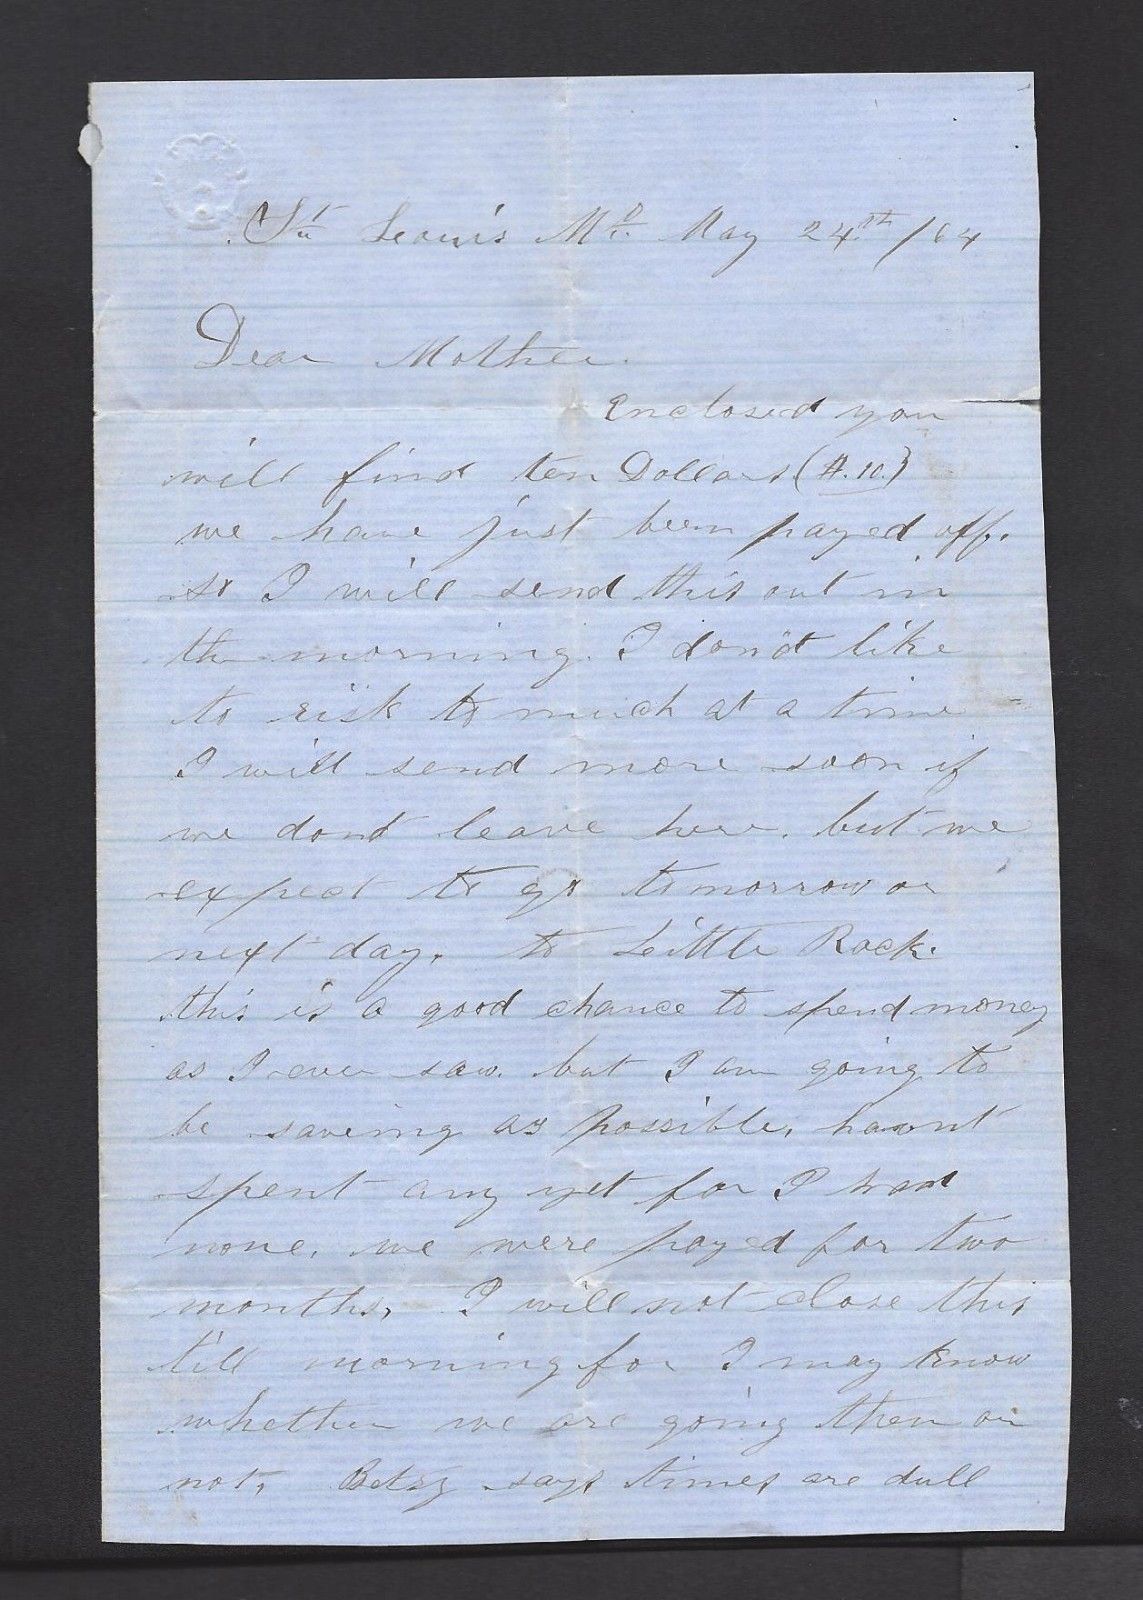 St Louis Mo. May 24th /64
Dear Mother.
Enclosed you
will find ten Dollars ($.10.)
we have just been payed off.
so I will send this out in
the morning. I don't like
to risk to much at a time
I will send more soon if
we dont leave here. but we
expect to go tomorrow or
next day. to Little Rock.
this is a good chance to spend money
as I ever saw. but I am going to
be saveing as possible, havnt
spent any yet for I had
none. we were payed for two
months, I will not close this
till morning for I may know
whether we are going then or
not, Betsy says times are dull